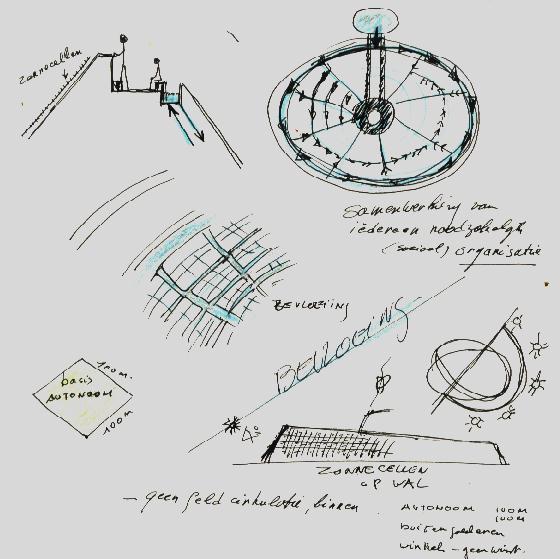 zonnecellen
Samenwerking van
iedereen noodzakelijk
(sociaal) organisatie
BEVLOEIING
BEVLOEIING
100 M.
basis
AUTONOOM
100 M
ZONNECELLEN
OP WAL
- geen geld cirkulatie, binnen
AUTONOOM 100M
100M
buiten
winkel - geen winst.